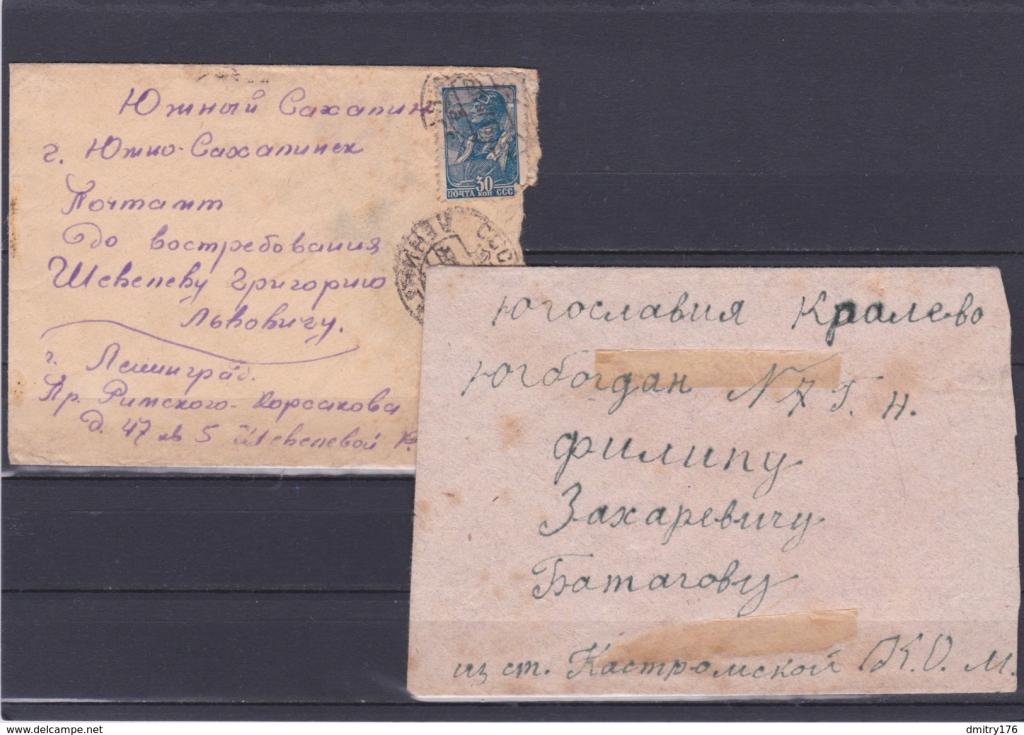 Южный Сахалин
г. Южно-Сахалинск
Почтамт
До востребования
Шевелеву Григорию
Львовичу.
г. Ленинград.
Пр. Римского-Корсакова
д. 47 кв 5 Шевелевой К.
30
ПОЧТА КОП СССР
СССР
Югославия Кралево
Югбогдан N 7 Г. н.
Филипу
Захаревичу
Батагову
из ст. Кастромской К.О. М.
www.delcampe.net
dmitry176